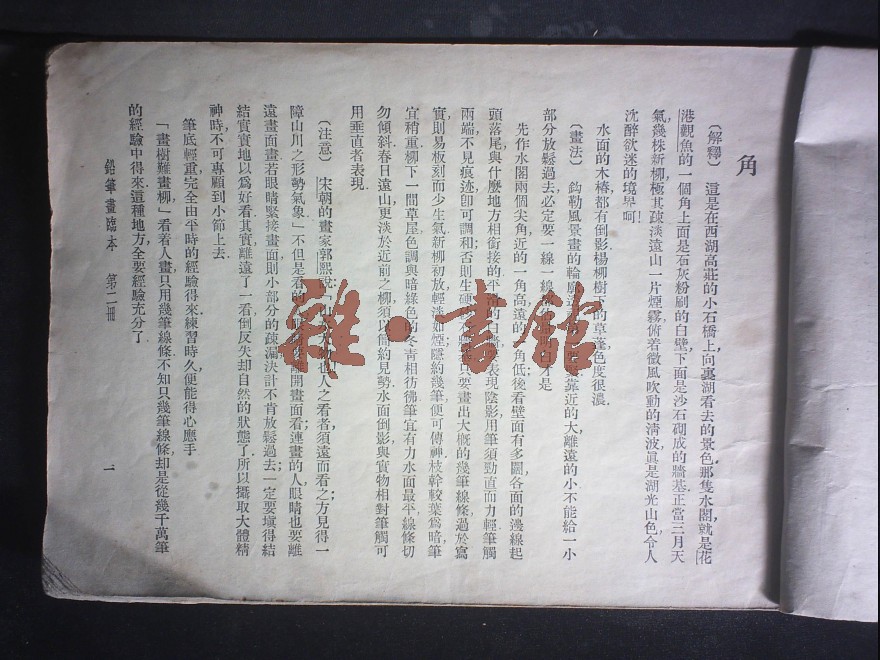 角
〔解釋〕 這是在西湖高莊的小石橋上，向裏湖看去的景色。那隻水閣就是花
港觀魚的一個角，上面是石灰粉刷的白壁，下面是沙石砌成的牆基。正當三月天
氣，幾株新柳，極其疎淡，遠山一片煙霧，俯着微風吹動的清波，眞是湖光山色，令人
沈醉欲迷的境界呵！
水面的木樁，都有倒影，楊柳樹下的草，蓬色度很濃。
〔畫法〕 鈎勒風景畫的輪廓，靠近的大，離遠的小，不能給一小
部分放鬆過去，必定要一線一線是
先作水閣兩個尖角，近的一角高，遠的一角低，後看壁面有多闊，各面的邊線，起
頭落尾與什麼地方相銜接的，平滑的白壁表現陰影，用筆須勁直而力輕，筆觸
兩端，不見痕迹，卽可調和，否則生硬只要畫出大槪的幾筆線條，過於寫
實，則易板刻而少生氣。新柳初放，輕淡如煙，隱約幾筆便可傳神，枝幹較葉爲暗，筆
宜稍重。柳下一間草屋，色調與暗綠色的冬青相彷彿，筆宜有力。水面最平，線條切
勿傾斜。春日遠山，更淡於近前之柳，須以簡約見勢。水面倒影，與實物相對，筆觸可
用垂直者表現。
〔注意〕 宋朝的畫家郭熙說：「山水物也，人之看者，須遠而看之，方見得一
障山川之形勢氣象」不但是看的眼睛離開畫面看；連畫的人，眼睛也要離
遠畫面畫。若眼睛緊接畫面，則小部分的疎漏，決計不肯放鬆過去，一定要塡得結
結實實地以爲好看。其實離遠了一看，倒反失却自然的狀態了。所以攝取大體精
神時，不可專顧到小節上去。
筆底輕重，完全由平時的經驗得來。練習時久，便能得心應手。
「畫樹難畫柳」看着人畫，只用幾筆線條，不知只幾筆線條，却是從幾千萬筆
的經驗中得來。這種地方，全要經驗充分了。
鉛筆畫臨本 第二冊 一
雜·書館